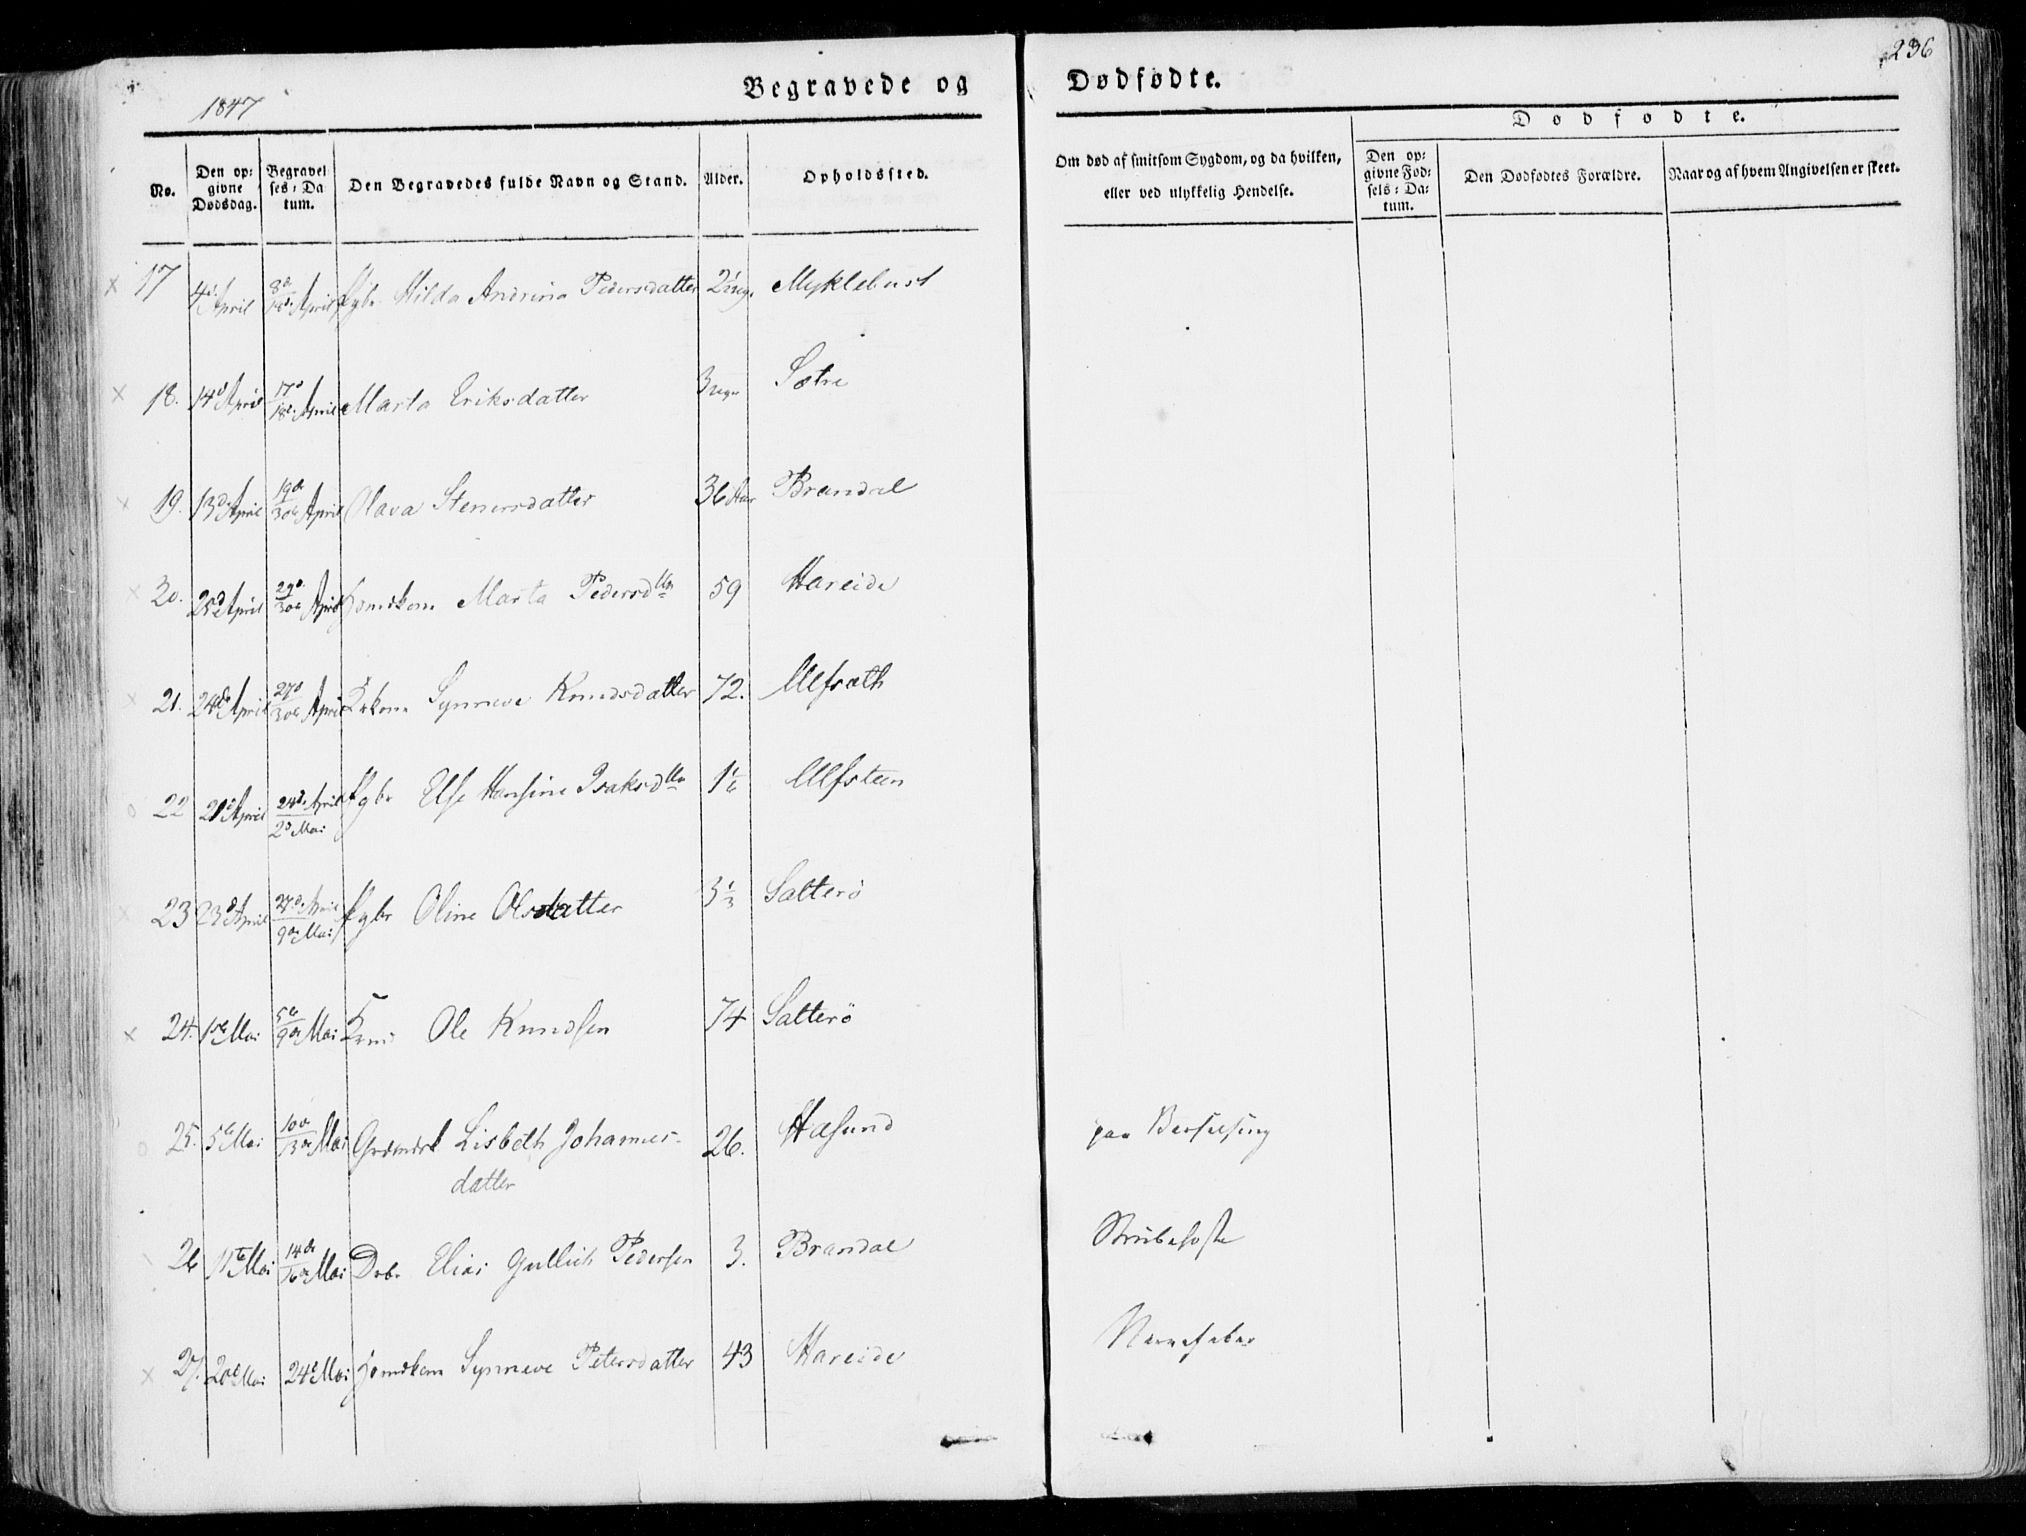 236
1847
Begravede og Dødfødte.
Dødfødte.
No.
Den op=
givne
Dødsdag.
Begravel
ses=Da
tum.
Den Begravedes fulde Navn og Stand.
Alder.
Opholdssted.
Om død af smitsom Sygdom, og da hvilken,
eller ved ulykkelig Hendelse.
Den op=
givne Fød=
sels=Da=
tum.
Den Dødfødtes Forældre.
Naar og af hvem Angivelsen er skeet.
17 4de April 8de April Pgbr Hilda Andrina Pedersdatter Myklebust
18. 14d April 17d 18de April Marta Eriksdatter 3 Sætre
19. 13de April 19de 30de April Olava Stenersdatter 36 Aar Brandal
20. 25de April 29d 30de April Marta Pedersdtr 59 Hareide
21. 24de April 27d 30de April Synneve Knudsdatter 72. Ulfsæth
22 21d April 24de April 2d Mai Pgbr Else Hansine Isaksdtr Ulfsteen
23 23d April 27de April 9de Mai Pgbr Oline Olsdatter 3 1/3 Satterö
24. 1ste Mai 5te 9de Mai Ole Knudsen 74 Satterö
25. 5te Mai 10de 13de Mai Lisbeth Johannes-
datter 26. Hasund paa Barselseng
26 11te Mai 14de 16de Mai Elias Gullich Pedersen 3. Brandal Strubehoste
27. 20de Mai 24d Mai Synneve Petersdatter 43 Hareide Nervefeber